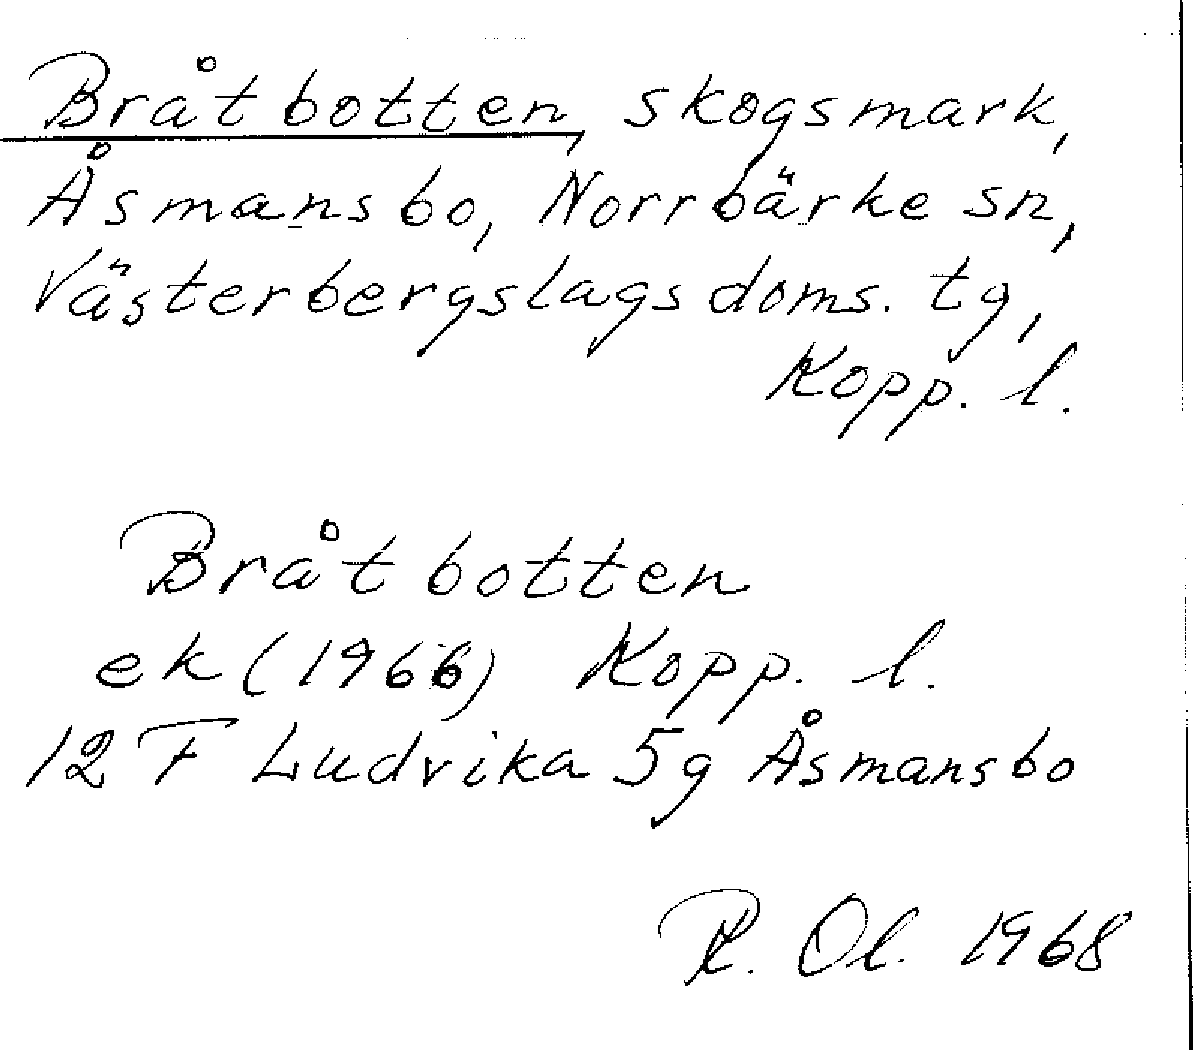 Bråtbotten, skogsmark,
Åsmansbo, Norrbärke sn,
Västerbergslags doms. tg,
Kopp. l.
Bråtbotten
ek (1966) Kopp. l.
12 F Ludvika 5g Åsmansbo
R. Ol. 1968